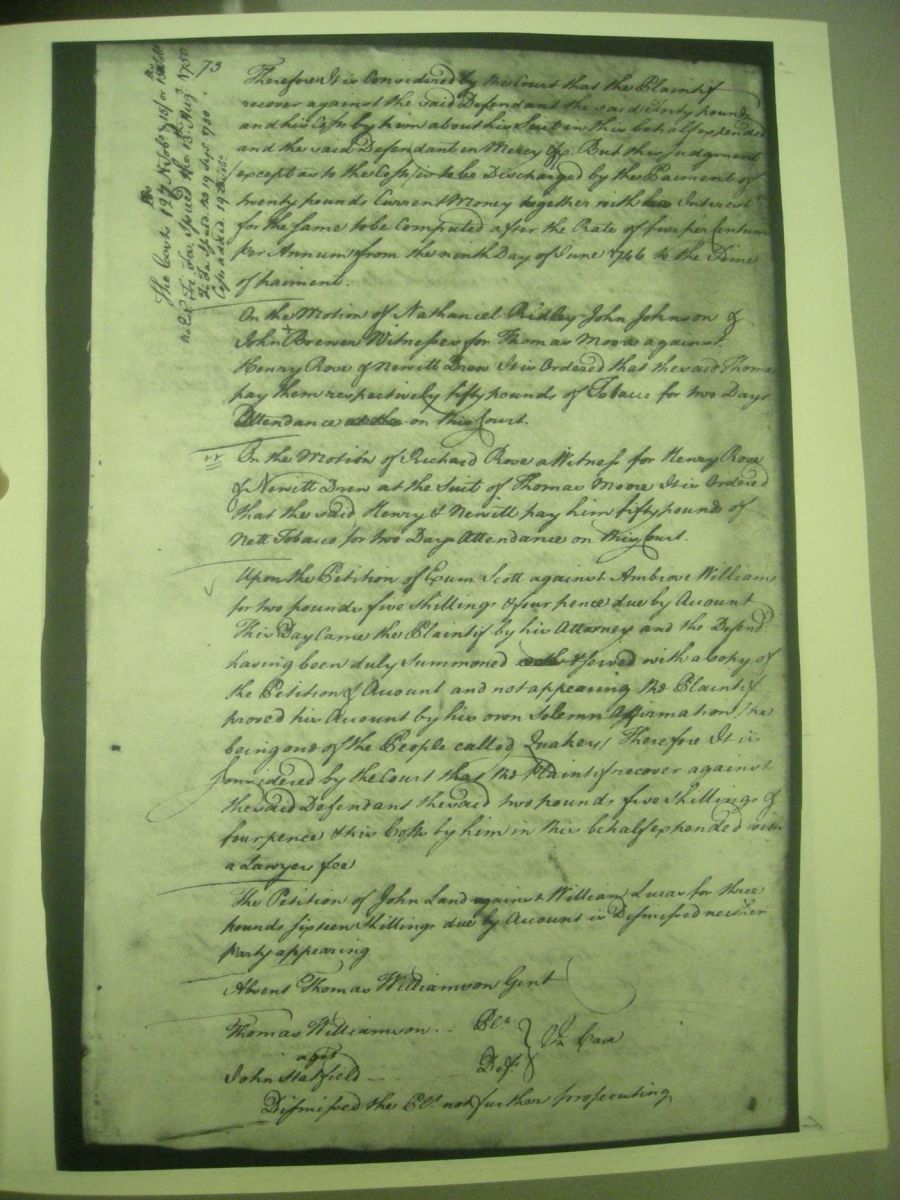 73
The Costs 127
Fi Fa. Issued the 13 Aug 1750
19 Sept 1750
Therefore It is Considered by the Court that the Plaintif
recover against the said Defendant the said Forty pounds
and his Costs by him about his Suit in this behalf expended
and the said Defendant in Mercy &c. But this Judgment
(except as to the Costs) is to be Discharged by the Paiment of
twenty pounds Current Money together with Interest
for the same to be Computed after the Rate of five per Centum
per Annum from the ninth Day of June 1746 to the Time
of paiment.
On the Motion of Nathaniel Ridley John Johnson &
John Brewer Witnesses for Thomas Moore against
Henry Rose & Newitt Drew It is Ordered that the said Thomas
pay them respectively fifty pounds of Tobacco for two Days
Attendance on this Court.
On the Motion of Richard Rose a Witness for Henry Rose
& Newitt Drew at the Suit of Thomas Moore It is Ordered
that the said Henry & Newitt pay him fifty pounds of
Nett Tobacco for two Days Attendance on this Court.
Upon the Petition of Exum Scott against Ambrose Williams
for two pounds five shillings & four pence due by Account
This Day Came the Plaintif by his Attorney and the Defend.t
having been duly Summoned & served with a Copy of
the Petition & Account and not appearing the Plaintif
proved his Account by his own Solemn Affirmation (he
being one of the People called Quakers) Therefore It is
Considered by the Court that the Plaintif recover against
the said Defendant the said two pounds five shillings &
four pence & his Costs by him in this behalf expended with
a Lawyers fee
The Petition of John Land against William Lucas for three
pounds sixteen shillings due by Account is Dismissed neither
Party appearing
Absent Thomas Williamson Gent
Thomas Williamson Pl.t
agst In Case
John Hatfield Def.t
Dismissed the Pl.t not further prosecuting